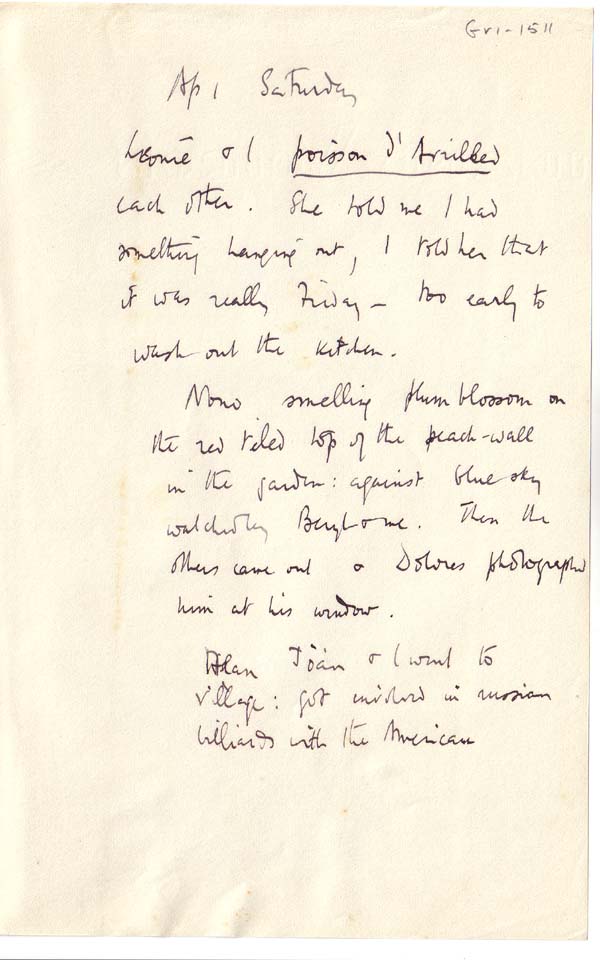 Gri-1511
Ap 1 Saturday
Leonie & I poisson d'Avrilled
each other. She told me I had
something hanging out, I told her that
it was really Friday - too early to
wash out the kitchen.
Nono smelling plum blossom on
the red tiled top of the peach-wall
in the garden: against blue sky
watched by Beryl & me. Then the
others came out & Dolores photographed
him at his window.
Alan & I went to
village: got involved in russian
billiards with the American